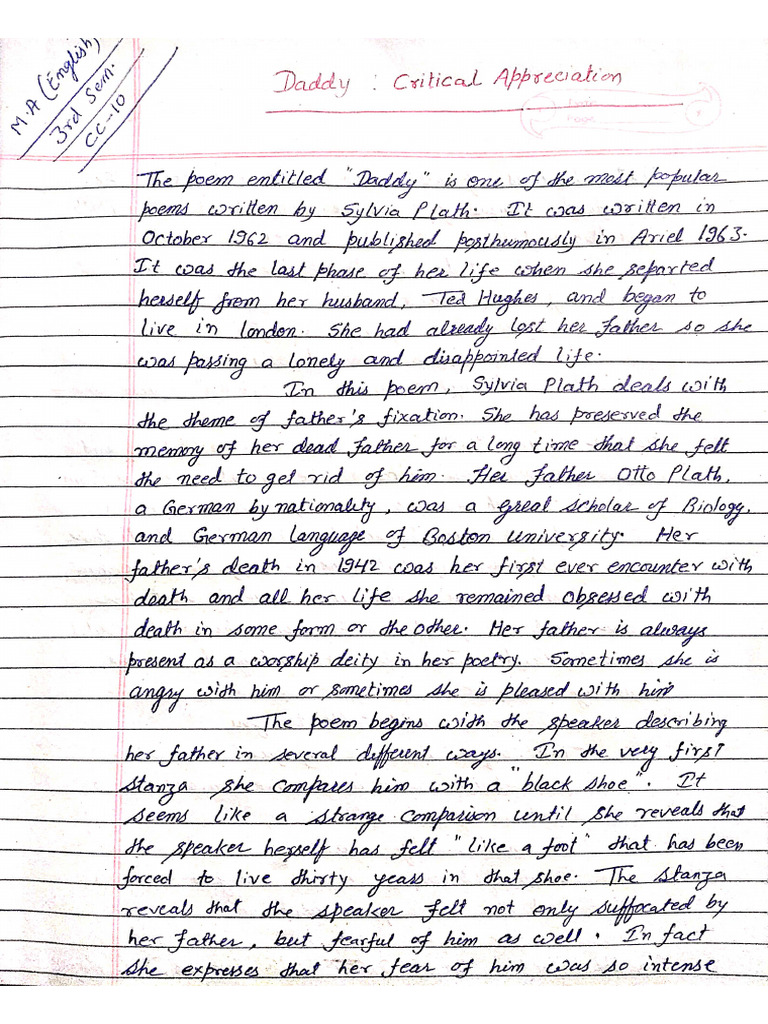 M.A (English)
3rd Sem.
CC-10
Daddy : Critical Appreciation
Date
Page
The poem entitled "Daddy" is one of the most popular
poems written by Sylvia Plath. It was written in
October 1962 and published posthumously in Ariel 1963.
It was the last phase of her life when she separted
herself from her husband, Ted Hughes, and began to
live in london. She had already lost her father so she
was passing a lonely and disappointed life.
In this poem, Sylvia Plath deals with
the theme of father's fixation. She has preserved the
memory of her dead father for a long time that she felt
the need to get rid of him. Her father Otto Plath,
a German by nationality, was a great scholar of Biology,
and German language of Boston University. Her
father's death in 1942 was her first ever encounter with
death and all her life she remained obsessed with
death in some form or the other. Her father is always
present as a worship deity in her poetry. Sometimes she is
angry with him or sometimes she is pleased with him
The poem begins with the speaker describing
her father in several different ways. In the very first
stanza she compares him with a "black shoe". It
seems like a strange comparison until she reveals that
the speaker herself has felt "like a foot" that has been
forced to live thirty years in that shoe. The stanza
reveals that the speaker felt not only suffocated by
her father, but fearful of him as well. In fact
she expresses that her fear of him was so intense